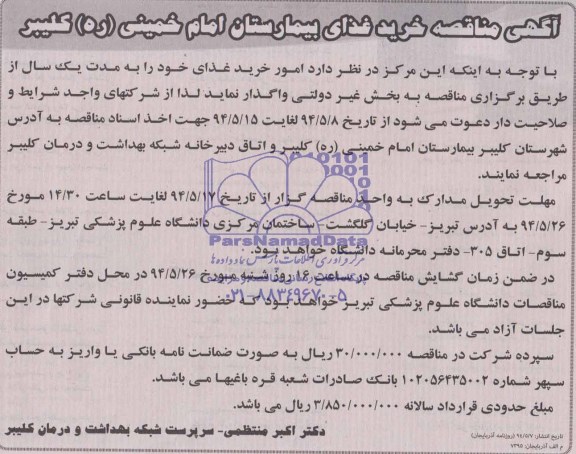 آگهی مناقصه خرید غذای بیمارستان امام خمینی (ره) کلیبر
با توجه به اینکه این مرکز در نظر دارد امور خرید غذای خود را به مدت یک سال از
طریق برگزاری مناقصه به بخش غیر دولتی واگذار نماید لذا از شرکتهای واجد شرایط و
صلاحیت دار دعوت می شود از تاریخ ۹۴/۵/۸ لغایت ۹۴/۵/۱۵ جهت اخذ اسناد مناقصه به آدرس
شهرستان کلیبر بیمارستان امام خمینی (ره) کلیبر و اتاق دبیرخانه شبکه بهداشت و درمان کلیبر
مراجعه نمایند.
مهلت تحویل مدارک به واحد مناقصه گزار از تاریخ ۹۴/۵/۱۷ لغایت ساعت ۱۴/۳۰ مورخ
۹۴/۵/۲۶ به آدرس تبریز- خیابان گلگشت- ساختمان مرکزی دانشگاه علوم پزشکی تبریز- طبقه
سوم- اتاق ۳۰۵- دفتر محرمانه دانشگاه خواهد بود.
ParsNamadData
در ضمن زمان گشایش مناقصه در ساعت ۱۶ روز شنبه مورخ ۹۴/۵/۲۶ در محل دفتر کمیسیون
۰۲۱-۸۸۳۴۹۶۷۰-۵
مناقصات دانشگاه علوم پزشکی تبریز خواهد بود که حضور نماینده قانونی شرکتها در این
جلسات آزاد می باشد.
سپرده شرکت در مناقصه ۳۰/۰۰۰/۰۰۰ ریال به صورت ضمانت نامه بانکی یا واریز به حساب
سپهر شماره ۰۱۰۲۰۵۶۴۳۵۰۰۲ بانک صادرات شعبه قره باغیها می باشد.
مبلغ حدودی قرارداد سالانه ۳/۸۵۰/۰۰۰/۰۰۰ ریال می باشد.
دکتر اکبر منتظمی- سرپرست شبکه بهداشت و درمان کلیبر
تاریخ انتشار: ۹۴/۵/۷ (روزنامه آذربایجان)
م الف آذربایجان: ۷۳۹۵